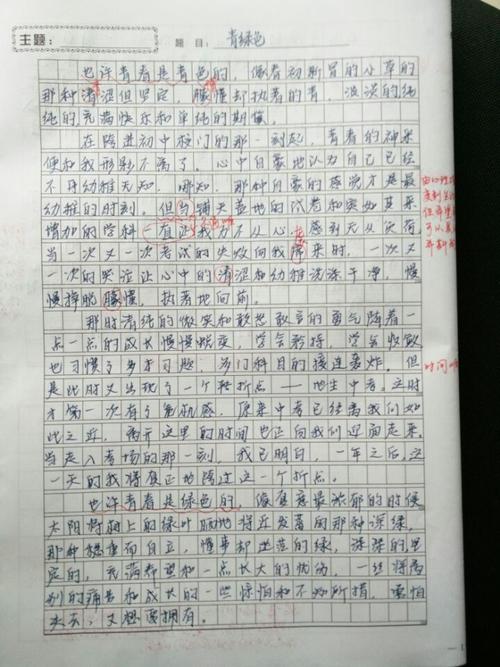 主题： 题目：青绿色
也许青春是青色的，像春初新冒的小草的
那种清涩但坚定，朦胧却执着的青，淡淡的纯
纯的充满快乐和单纯的期待。
在踏进初中校门的那一刻起，青春的神采
便和我形影不离了。心中自豪地认为自己已经
不再幼稚无知，哪知，那种自豪的感觉才是最
幼稚的时刻。但当铺天盖地的试卷和突如其来
增加的学科一直让我力不从心，感到无从负荷
当一次又一次考试的失败向我席来时，一次又
一次的哭泣让心中的清涩和幼稚洗涤干净，慢
慢摆脱朦胧，执着地向前。
那时青纯的微笑和敢想敢言的勇气随着一
点一点的成长慢慢蜕变，学会矜持，学会收敛
也习惯了多才习题，多门科目的接连轰炸。但
是此时又出现了一个转折点——地生中考。这时
才第一次有了危机感，原来中考已经离我们如
此之近，离开这里的时间也正向我们迎面走来。
当走入考场的那一刻，我已明白，一年之后，这
一天的我将真正地跨过这一个折点。
也许青春是绿色的，像夏意最浓郁的时候
太阳将树上的绿叶晒地将近发亮的那种深绿，
那种稳重而自立，懂事却迷茫的绿，深深的坚
定的，充满希望和一点长大的忧伤，一丝将离
别的痛苦和成长的一些惊怕和不知所措，害怕
失去，又想要拥有。
时间